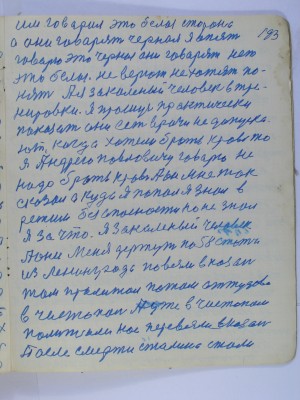 им говарил это белая сторона
а они говарят черная я опять
говарю это черная они говарят нето
это белая. не верют не хотят по-
нять Ая закаленый человек в тре-
нировки. я просился практически
показать они сети врачи не допуска-
ют, когда хотели брать кровь то
я Андрею повловичу говарю не
надо брать кровь А он мне так
сказал а куды я попал я знал в
режим безпасности но не знал
я за что. я закаленый человек
А они меня держут по 58 статьи
из Ленинграда повезли в казан
там пролижал потом оттудова
в чистопол в чистопол
полижали нас перевезли в казан
После смерти сталина стали
193